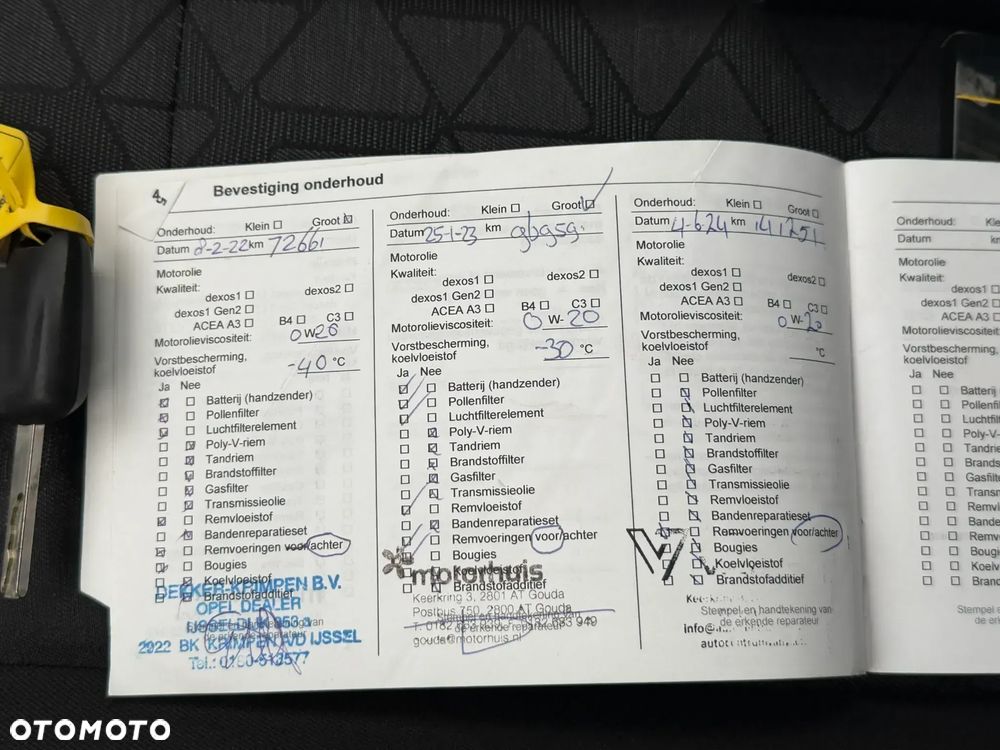 45
Bevestiging onderhoud
Onderhoud: Klein Groot
Datum 8-2-22 km 72661
Motorolie
Kwaliteit:
dexos1 dexos2
dexos1 Gen2
ACEA A3 B4 C3
Motorolieviscositeit: 0 W 20
Vorstbescherming,
koelvloeistof -40 °C
Ja Nee
Batterij (handzender)
Pollenfilter
Luchtfilterelement
Poly-V-riem
Tandriem
Brandstoffilter
Gasfilter
Transmissieolie
Remvloeistof
Bandenreparatieset
Remvoeringen voor/achter
Bougies
Koelvloeistof
Brandstofadditief
DEKKER-KRIMPEN B.V.
OPEL DEALER
IJSSELDIJK 153 a
de erkende reparateur
2922 BK KRIMPEN A/D IJSSEL
Tel.: 0180-513577
Onderhoud: Klein Groot
Datum 25-1-23 km
Motorolie
Kwaliteit:
dexos1 dexos2
dexos1 Gen2
ACEA A3 B4 C3
Motorolieviscositeit: 0 W- 20
Vorstbescherming,
koelvloeistof -30 °C
Ja Nee
Batterij (handzender)
Pollenfilter
Luchtfilterelement
Poly-V-riem
Tandriem
Brandstoffilter
Gasfilter
Transmissieolie
Remvloeistof
Bandenreparatieset
Remvoeringen voor/achter
Bougies
Koelvloeistof
Brandstofadditief
motorhuis
Keerkring 3, 2801 AT Gouda
Postbus 750, 2800 AT Gouda
Stempel en handtekening van
de erkende reparateur
gouda@motorhuis.nl
Onderhoud: Klein Groot
Datum 4-6 24 km 141251
Motorolie
Kwaliteit:
dexos1 dexos2
dexos1 Gen2
ACEA A3 B4 C3
Motorolieviscositeit: 0 W- 20
Vorstbescherming,
koelvloeistof °C
Ja Nee
Batterij (handzender)
Pollenfilter
Luchtfilterelement
Poly-V-riem
Tandriem
Brandstoffilter
Gasfilter
Transmissieolie
Remvloeistof
Bandenreparatieset
Remvoeringen voor/achter
Bougies
Koelvloeistof
Brandstofadditief
Stempel en handtekening van
de erkende reparateur
Onderhoud: Klein
Datum
Motorolie
Kwaliteit:
dexos1
dexos1 Gen2
ACEA A3
Motorolieviscositeit:
Vorstbescherming,
koelvloeistof
Ja Nee
OTOMOTO